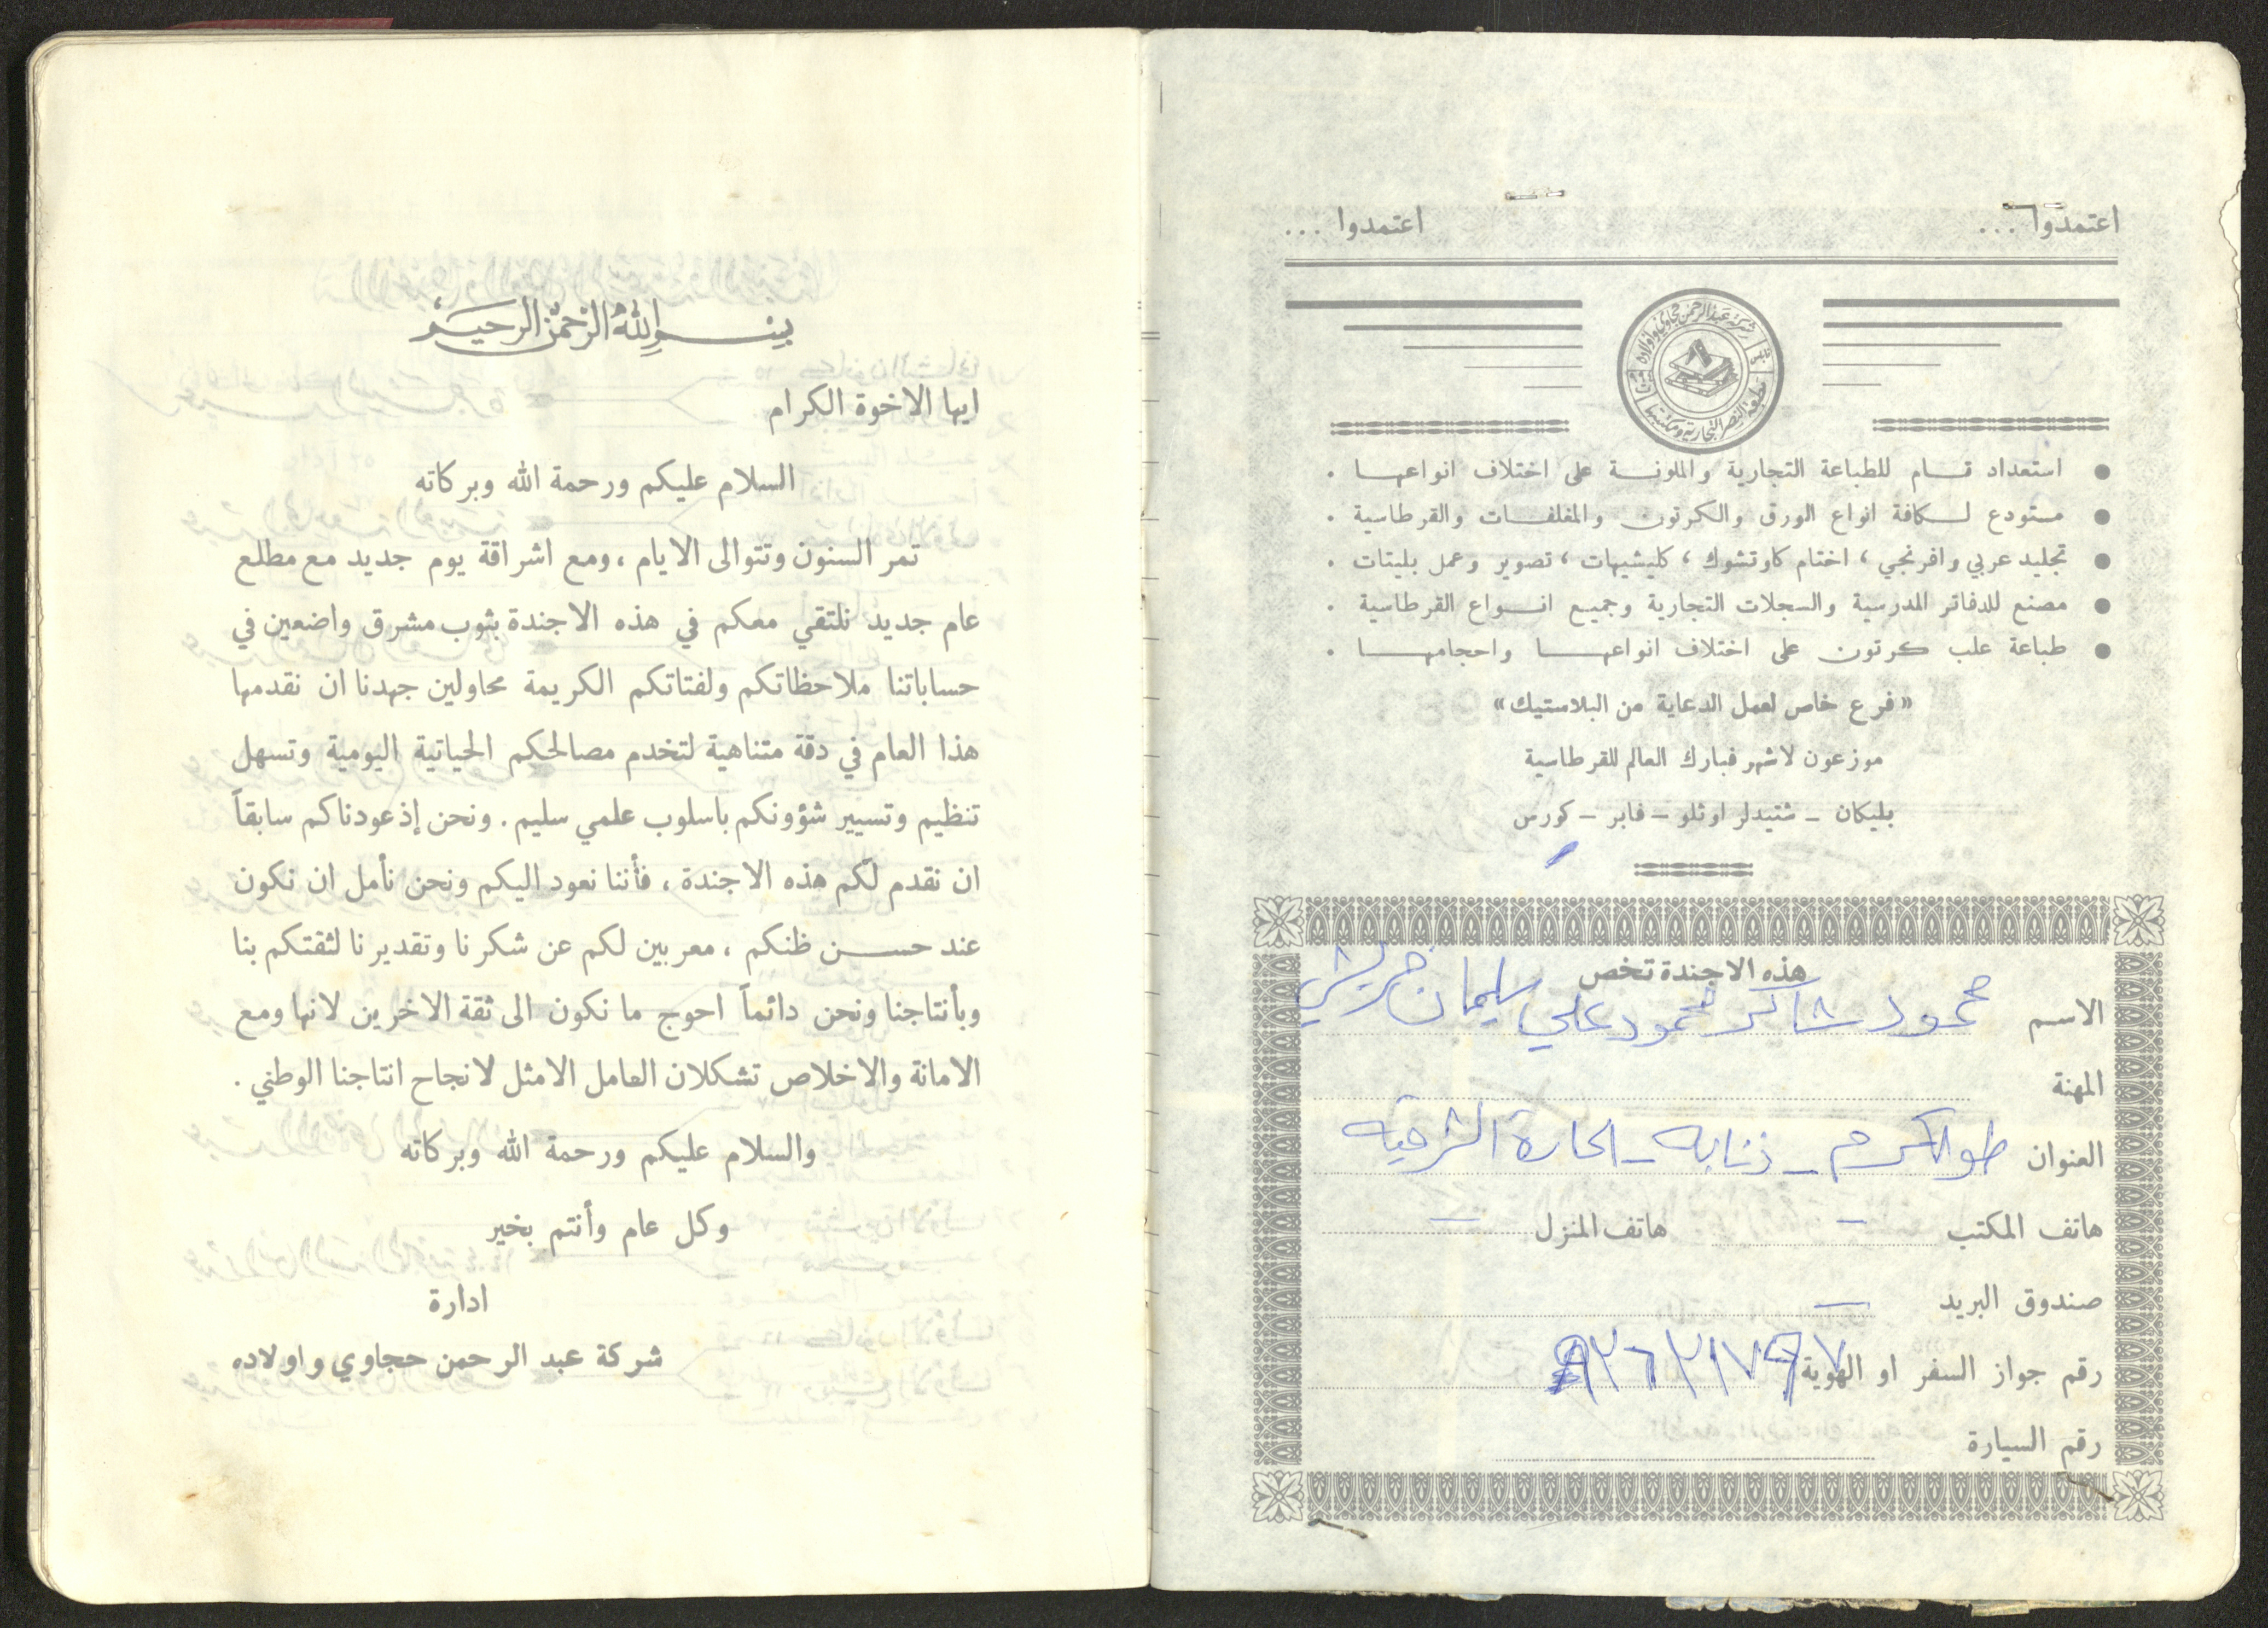 اعتمدوا ...
اعتمدوا ...
شركة عبد الرحمن حجاوي واولاده
نابلس
مطبعة النصر التجارية ومكتبتها
• استعداد تام للطباعة التجارية والملونة على اختلاف انواعها .
• مستودع لكافة انواع الورق والكرتون والمغلفات والقرطاسية .
• تجليد عربي وافرنجي ، اختام كاوتشوك ، كليشيهات ، تصوير وعمل بليتات .
• مصنع للدفاتر المدرسية والسجلات التجارية وجميع انواع القرطاسية .
• طباعة علب كرتون على اختلاف انواعها واحجامها .
« فرع خاص لعمل الدعاية من البلاستيك »
موزعون لاشهر فبارك العالم للقرطاسية
بليكان - شتيدلر اوثلو - فابر - كورس
هذه الاجندة تخص
الاسم محمود شاكر محمود علي سليمان خريشي
المهنة
العنوان طولكرم - ذنابه - الحارة الشرقيه
هاتف المكتب - هاتف المنزل -
صندوق البريد -
رقم جواز السفر او الهوية
رقم السيارة
بسم الله الرحمن الرحيم
ايها الاخوة الكرام
السلام عليكم ورحمة الله وبركاته
تمر السنون وتتوالى الايام ، ومع اشراقة يوم جديد مع مطلع
عام جديد نلتقي معكم في هذه الاجندة بثوب مشرق واضعين في
حساباتنا ملاحظاتكم ولفتاتكم الكريمة محاولين جهدنا ان نقدمها
هذا العام في دقة متناهية لتخدم مصالحكم الحياتية اليومية وتسهل
تنظيم وتسيير شؤونكم باسلوب علمي سليم . ونحن إذ عودناكم سابقاً
ان نقدم لكم هذه الاجندة ، فأننا نعود اليكم ونحن نأمل ان نكون
عند حسن ظنكم ، معربين لكم عن شكرنا وتقديرنا لثقتكم بنا
وبأنتاجنا ونحن دائماً احوج ما نكون الى ثقة الاخرين لانها ومع
الامانة والاخلاص تشكلان العامل الامثل لانجاح انتاجنا الوطني .
والسلام عليكم ورحمة الله وبركاته
وكل عام وأنتم بخير
ادارة
شركة عبد الرحمن حجاوي واولاده